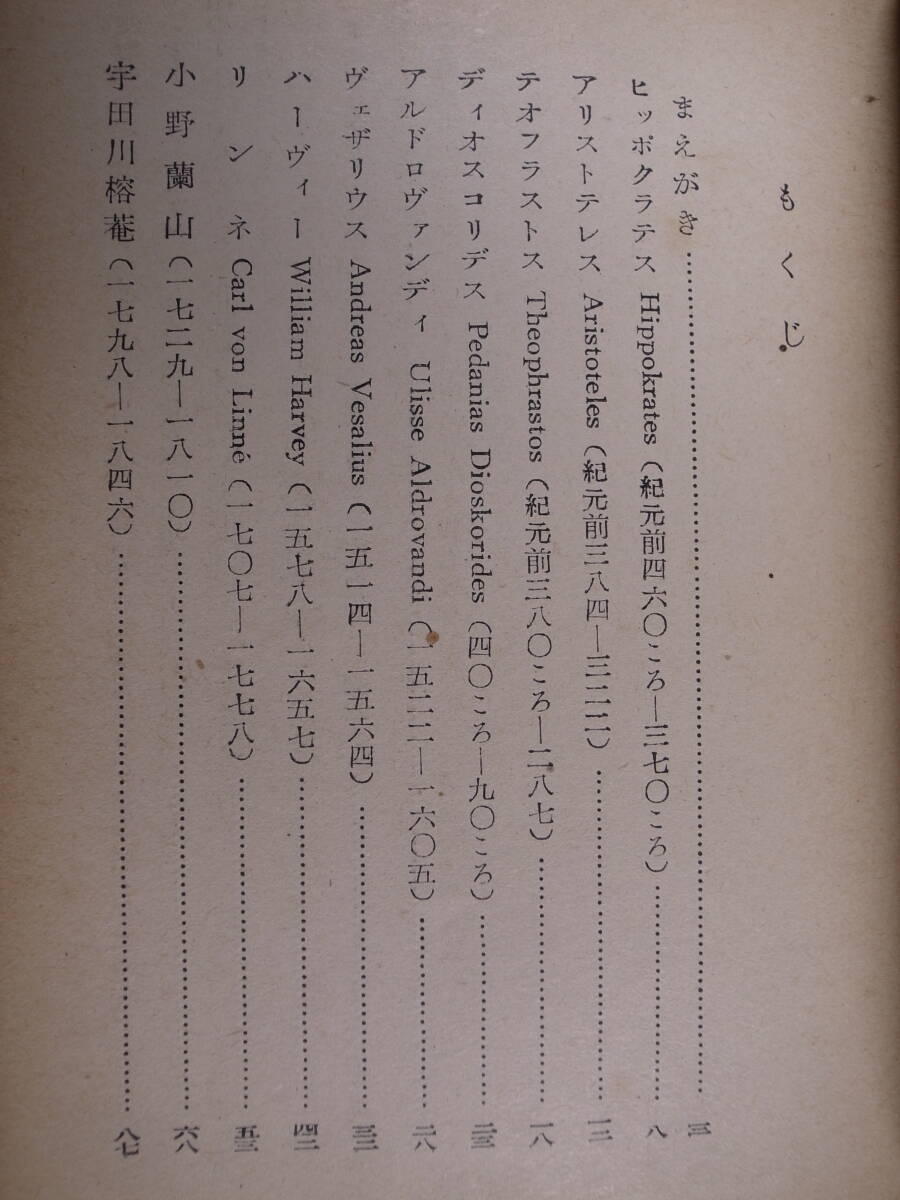 もくじ
まえがき……三
ヒッポクラテス Hippokrates (紀元前四六〇ころ—三七〇ころ)……八
アリストテレス Aristoteles (紀元前三八四—三二二)……一二
テオフラストス Theophrastos (紀元前三八〇ころ—二八七)……一八
ディオスコリデス Pedanias Dioskorides (四〇ころ—九〇ころ)……二三
アルドロヴァンディ Ulisse Aldrovandi (一五二二—一六〇五)……二八
ヴェザリウス Andreas Vesalius (一五一四—一五六四)……三三
ハーヴィー William Harvey (一五七八—一六五七)……四二
リンネ Carl von Linné (一七〇七—一七七八)……五三
小野蘭山 (一七二九—一八一〇)……六八
宇田川榕菴 (一七九八—一八四六)……八七